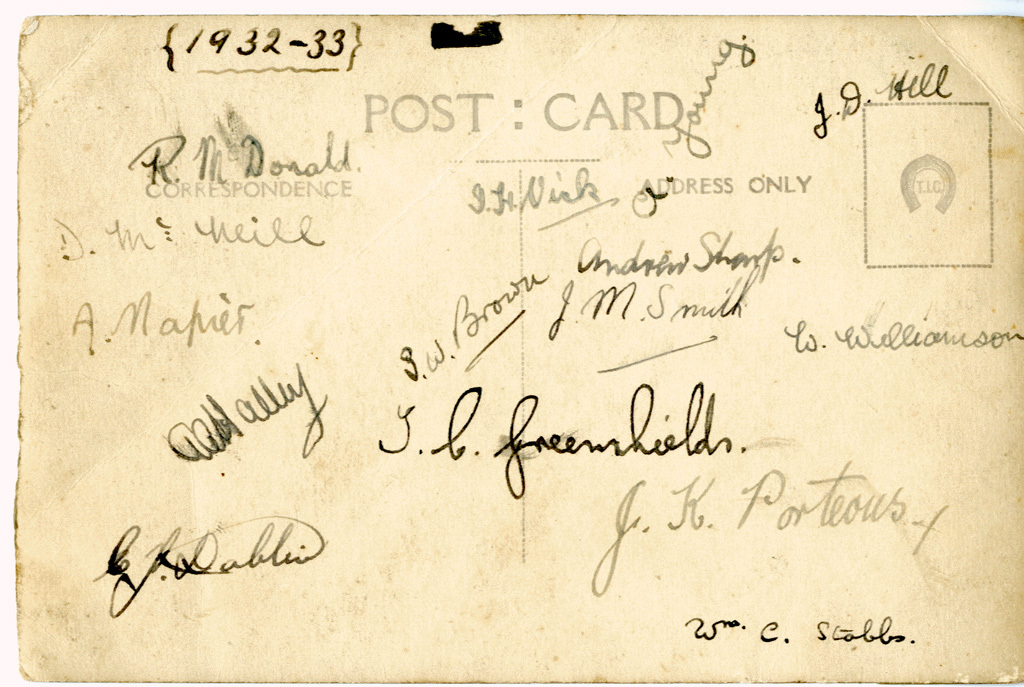 {1932-33}
POST : CARD
J. D. Hill
R. McDonald.
CORRESPONDENCE
ADDRESS ONLY
T.I.C.
Vick
D. Mc Neill
Andrew Sharp.
A. Napier.
W. Brown
J. M. Smith
W. Williamson
Halley
T. C. Greenshields.
J. K. Porteous.
Dablin
Wm. C. Stobbs.